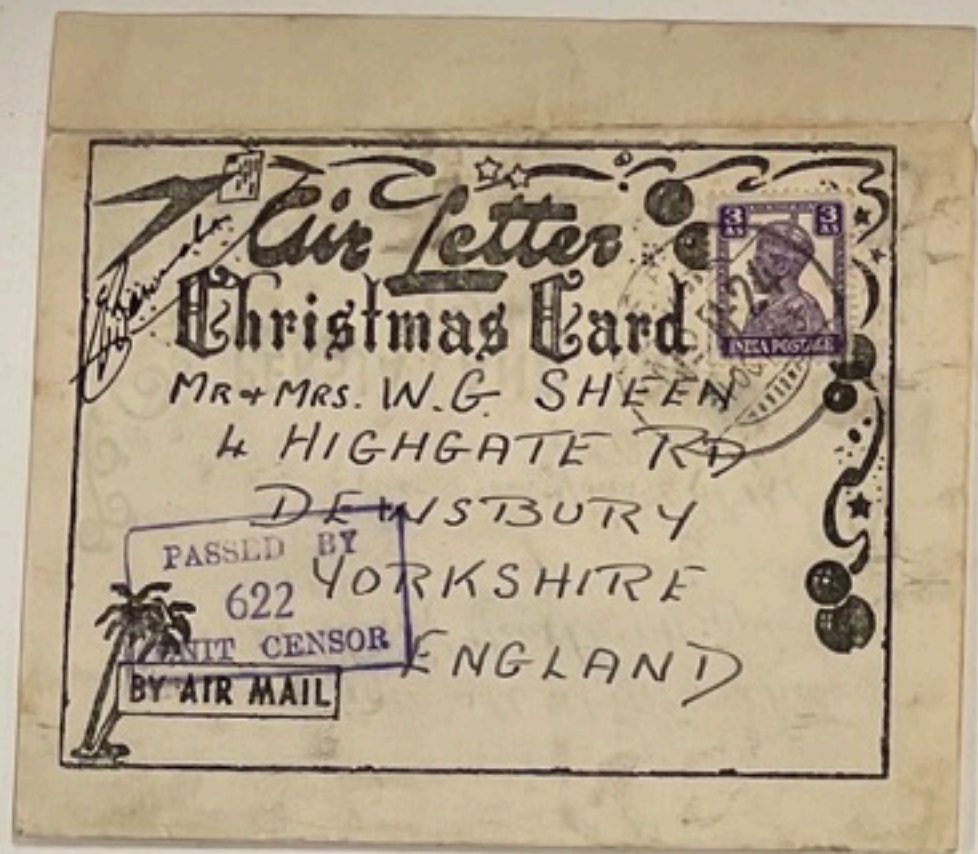 Air Letter
Christmas Card
3 As 3 As
INDIA POSTAGE
MR & MRS. W.G. SHEEN
4 HIGHGATE RD
DEWSBURY
YORKSHIRE
ENGLAND
PASSED BY
622
UNIT CENSOR
BY AIR MAIL